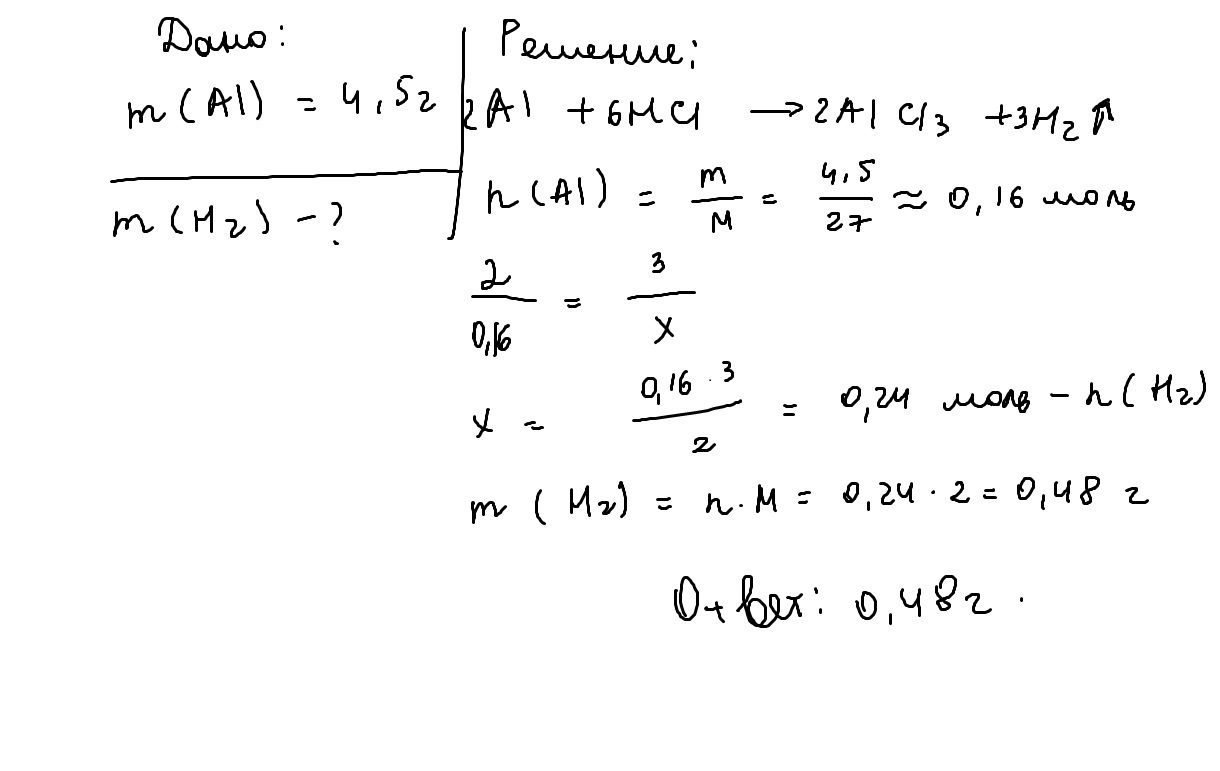 Дано:
m (Al) = 4,5 г
m (H₂) - ?
Решение:
2Al + 6HCl → 2AlCl₃ + 3H₂ ↑
n (Al) = m/M = 4,5/27 ≈ 0,16 моль
2/0,16 = 3/x
x = 0,16 · 3/2 = 0,24 моль - n (H₂)
m (H₂) = n · M = 0,24 · 2 = 0,48 г
Ответ: 0,48 г.